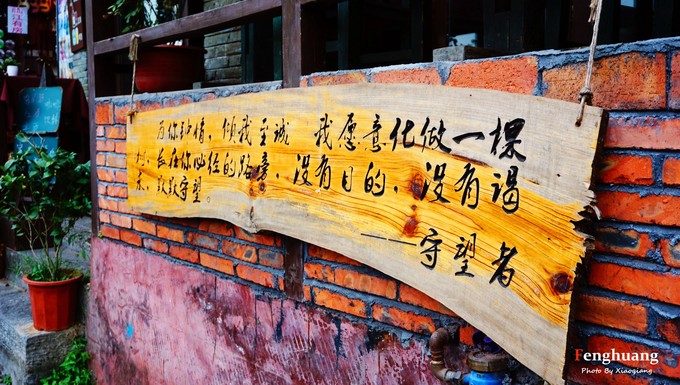 临江有房
为你钟情，倾我至诚 我愿意化做一棵
树，长在你必经的路旁，没有目的，没有谒
求，默默守望。
——守望者
Fenghuang
Photo By Xiaoqiang